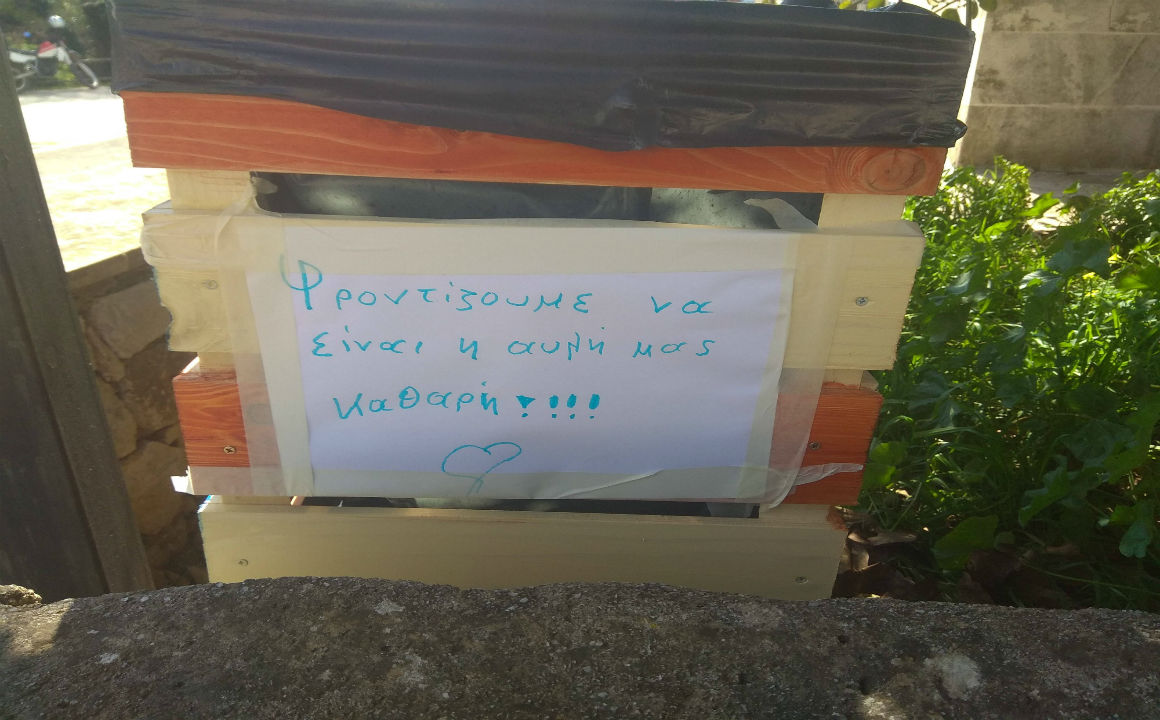 Φροντίζουμε να
είναι η αυλή μας
καθαρή!!!!